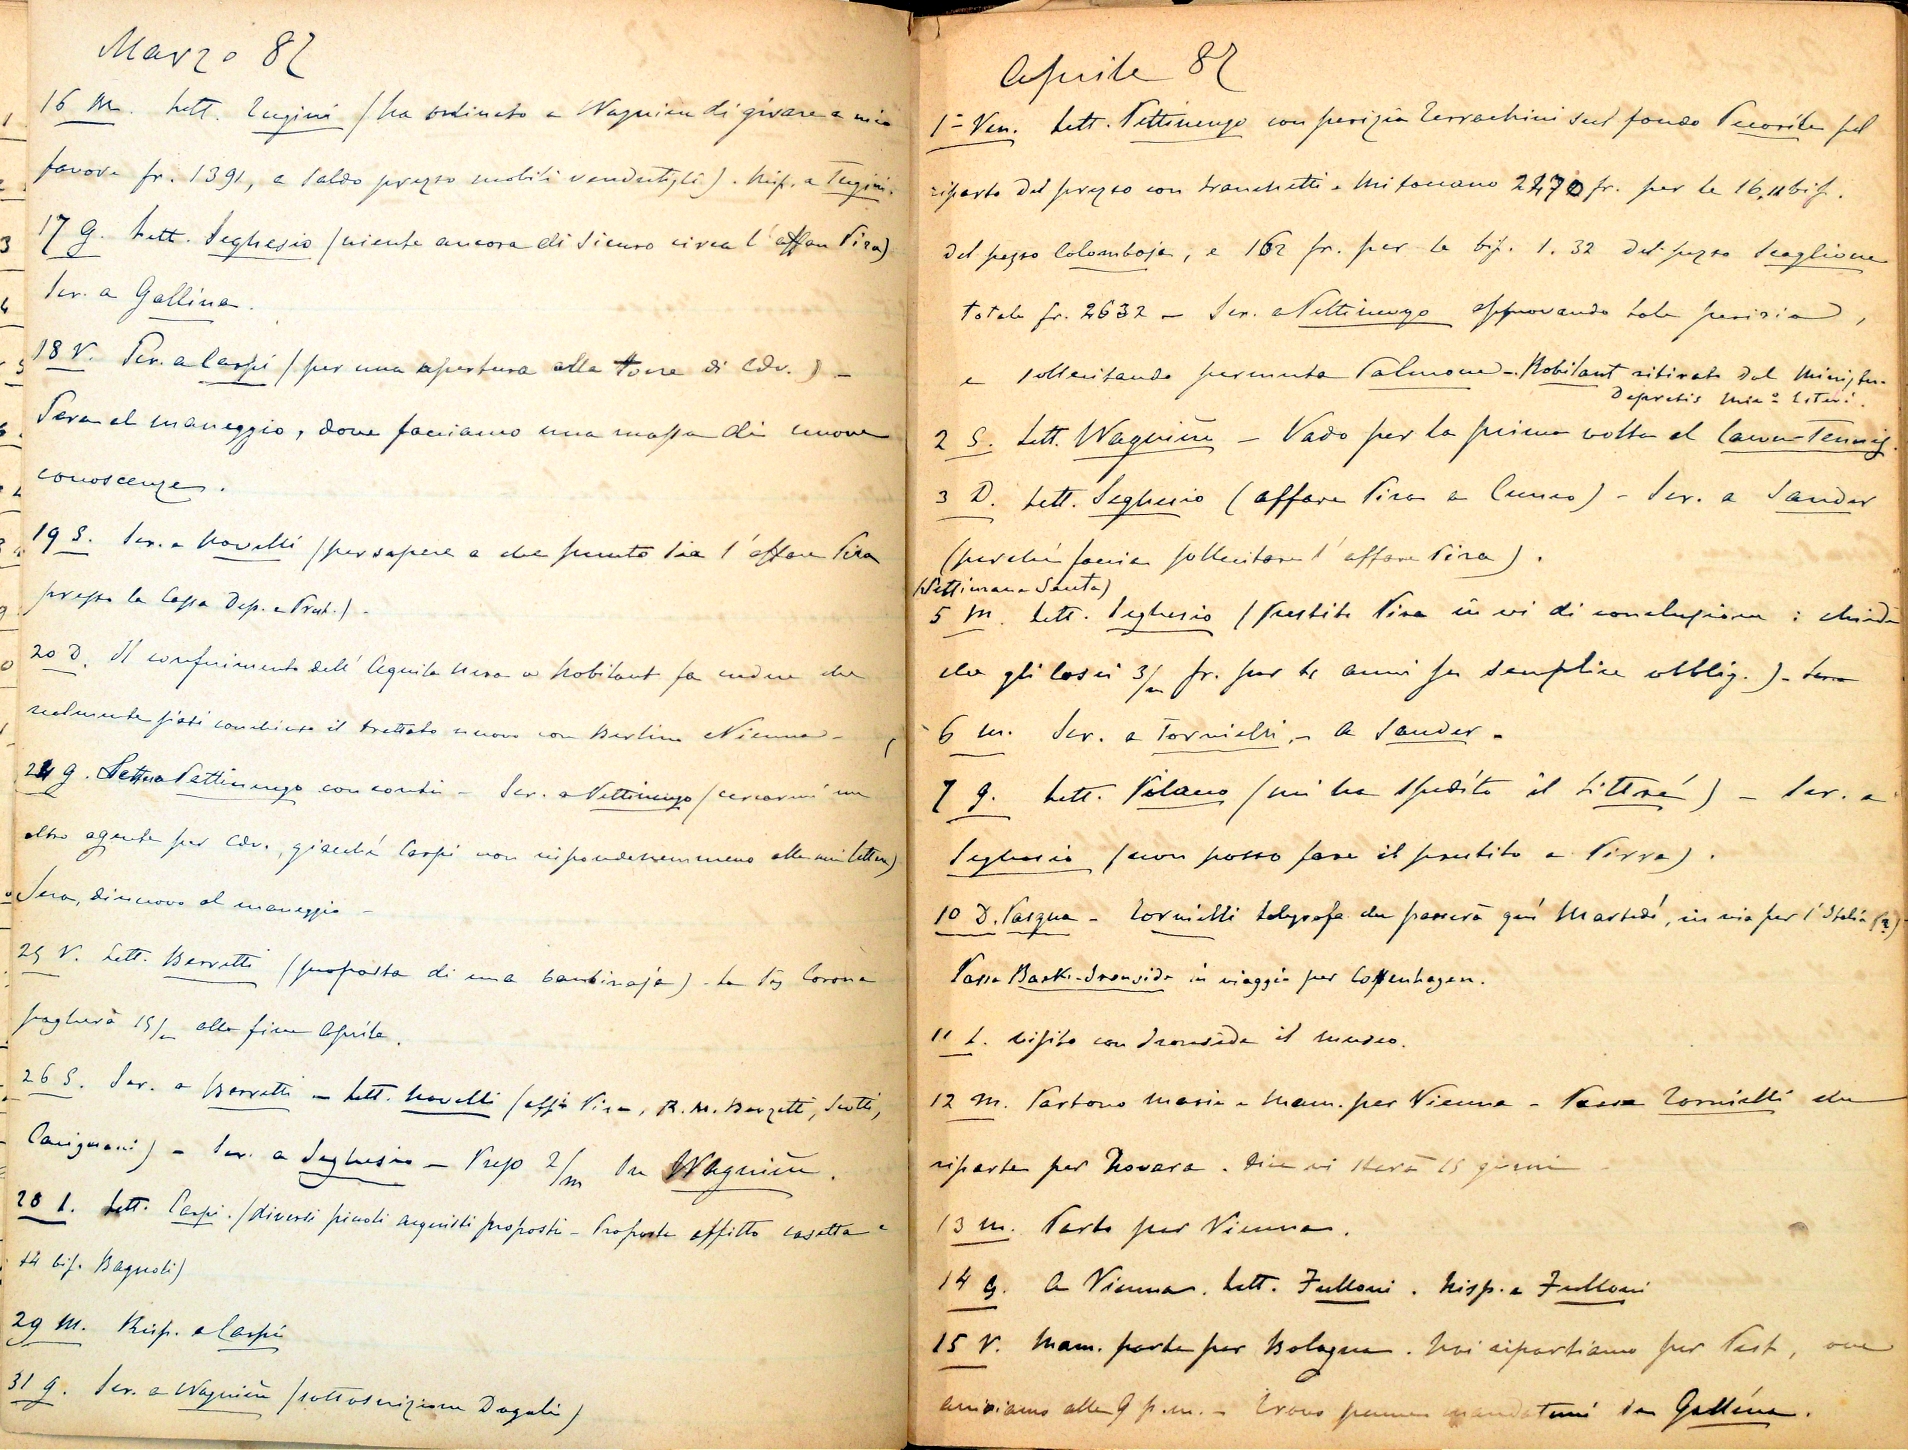 Marzo 87
16 M. Lett. Tugini (ha ordinato a Wagnière di girare a mio
favore fr. 1391, a saldo prezzo mobili vendutigli). Risp. a Tugini.
17 G. Lett. Seghesio (niente ancora di sicuro circa l'affare Pira)
Scr. a Gallina.
18 V. Scr. a Carpi (per una apertura alla torre di Cdv.) –
Sera al maneggio, dove facciamo una massa di nuove
conoscenze.
19 S. Scr. a Novelli (per sapere a che punto sia l'affare Pira
presso la Cassa Dep. e Prest.) –
20 D. Il conferimento dell'Aquila Nera a Robilant fa credere che
realmente siasi conchiuso il trattato nuovo con Berlino e Vienna –
24 G. Lettera Pettinengo con conti – Scr. a Pettinengo (cercarmi un
altro agente per Cdv., giacché Carpi non risponde nemmeno alle mie lettere)
Sera, di nuovo al maneggio –
25 V. Lett. Berretti (proposta di una bambinaja) – La Corona
pagherà 15/m alla fine Aprile.
26 S. Scr. a Berretti – Lett. Novelli (aff. Pira, R. M. Barzetti, Scotti,
Carignani) – Scr. a Seghesio – 2/m Wagnière.
28 L. Lett. Carpi. (diversi piccoli acquisti proposti – Proposta affitto casetta e
14 bif. Bagnoli)
29 M. Risp. a Carpi
31 G. Scr. a Wagnière (sottoscrizione Dogali)
Aprile 87
1° Ven. Lett. Pettinengo con perizia Terrachini sul fondo Pecorile pel
riparto del prezzo con Franchetti e mi toccano 2470 fr. per le 16,11 bif.
del pezzo Colombaja, e 162 fr. per le bif. 1.32 del pezzo Scaglione
totale fr. 2632 – Scr. a Pettinengo approvando tale perizia,
e sollecitando permuta Palmone – Robilant ritirato dal Minist.
Depretis Min° Esteri.
2 S. Lett. Wagnière – Vado per la prima volta al Lawn-Tennis.
3 D. Lett. Seghesio (affare Pira a Cuneo) – Scr. a Sander
(perché faccia sollecitare l'affare Pira).
(Settimana Santa)
5 M. Lett. Seghesio (Prestito Pira in via di conclusione: chiede
che gli lasci 3/m fr. per anni su semplice obblig.) –
6 M. Scr. a Tornielli, – a Sander –
7 G. Lett. Vilano (mi ha spedito il Littré) – Scr. a
Seghesio (non posso fare il prestito a Pirra).
10 D. Pasqua – Tornielli telegrafa che passerà qui Martedì, in via per l'Italia (?)
Passa Bax-Ironside in viaggio per Coppenhagen.
11 L. visito con Ironside il museo.
12 M. Partono Maria e Mam. per Vienna – Passa Tornielli che
riparte per Novara. Dice vi starà 15 giorni –
13 M. Parto per Vienna.
14 G. A Vienna. Lett. Fulloni. Risp. a Fulloni
15 V. Mam. parte per Bologna. Noi ripartiamo per Pest, ove
arriviamo alle 9 p.m. – Trovo penne mandatemi da Gallina.